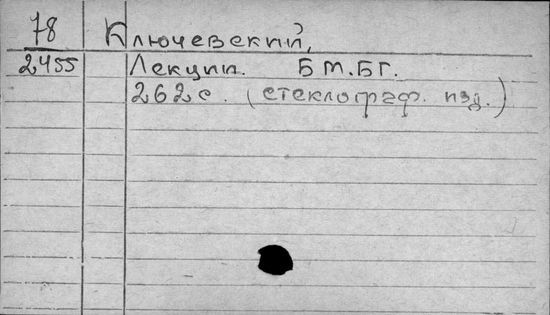 78 Ключевский,
2455 Лекции. Б М. БГ.
262 с. (стеклограф. изд.)